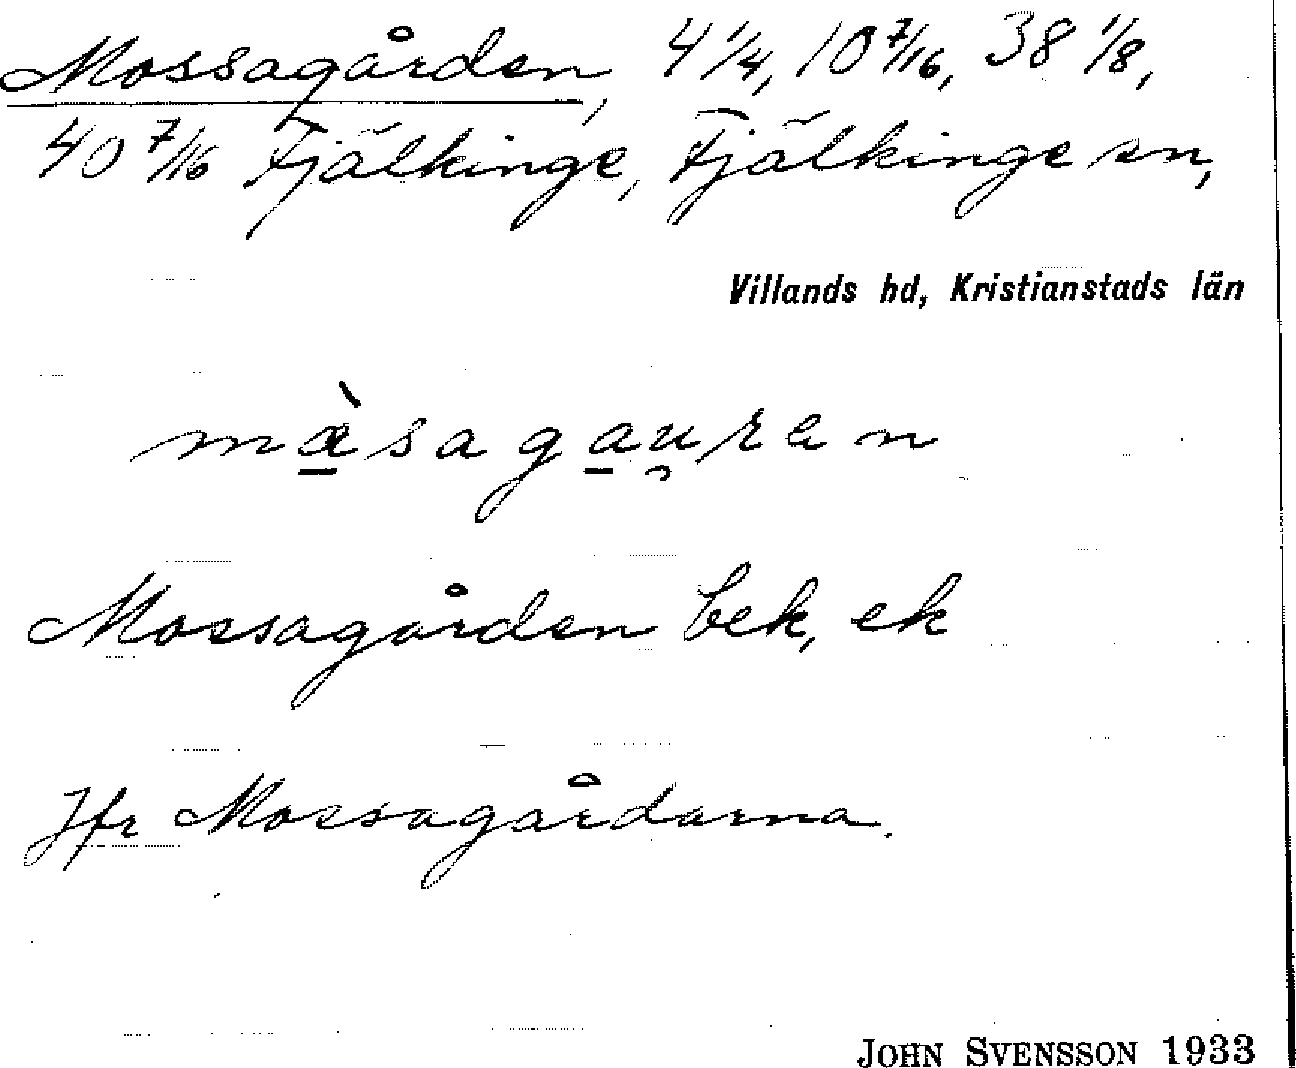 Mossagården, 4 1/4, 10 7/16, 38 1/8,
40 7/16 Fjälkinge, Fjälkinge sn,
Villands hd, Kristianstads län
mæ̀sagau̯ren
Mossagården bek, ek
Jfr Mossagårdarna.
JOHN SVENSSON 1933